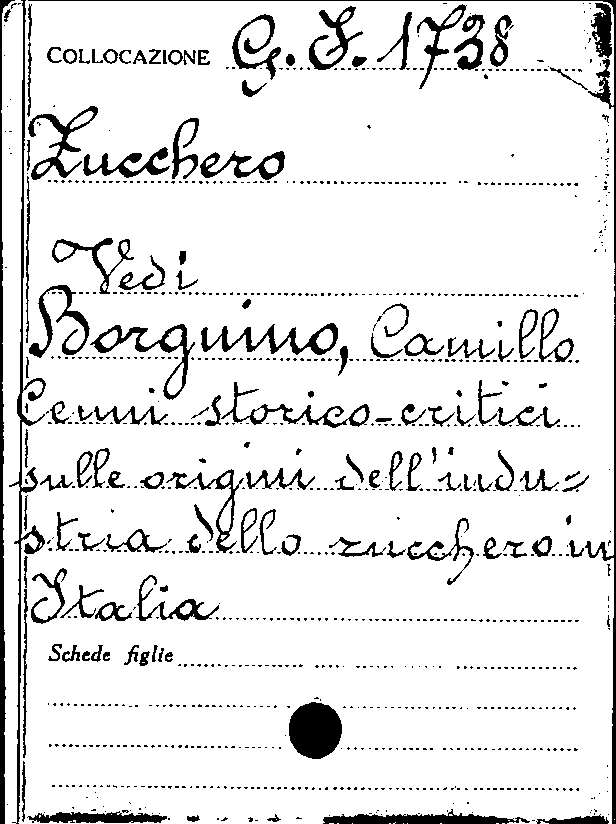 COLLOCAZIONE G. I. 1738
Zucchero
Vedi
Borguino, Camillo
Cenni storico-critici
sulle origini dell'indu=
stria dello zucchero in
Italia
Schede figlie